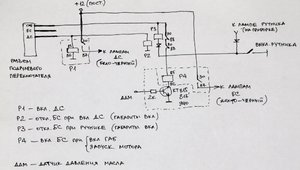 +12 (пост)
К ЛАМПЕ РУЧНИКА
(НА ПРИБОРКЕ)
ВКЛ. РУЧНИКА
К ЛАМПАМ ДС
(БЕЛО-ЧЕРНЫЙ)
Р1
Р2
Р3
Р4
РАЗЪЕМ
ПОДРУЛЕВОГО
ПЕРЕКЛЮЧАТЕЛЯ
К ЛАМПАМ
БС
ДДМ
2к
КТ815
Р1 - ВКЛ. ДС
Р2 - ОТКЛ. БС ПРИ ВКЛ ДС (ГАБАРИТЫ ВКЛ)
Р3 - ОТКЛ. БС ПРИ РУЧНИКЕ (ГАБАРИТЫ ВКЛ)
Р4 - ВКЛ БС ПРИ ВКЛ ГАБ
ЗАПУСК МОТОРА
ДДМ - ДАТЧИК ДАВЛЕНИЯ МАСЛА